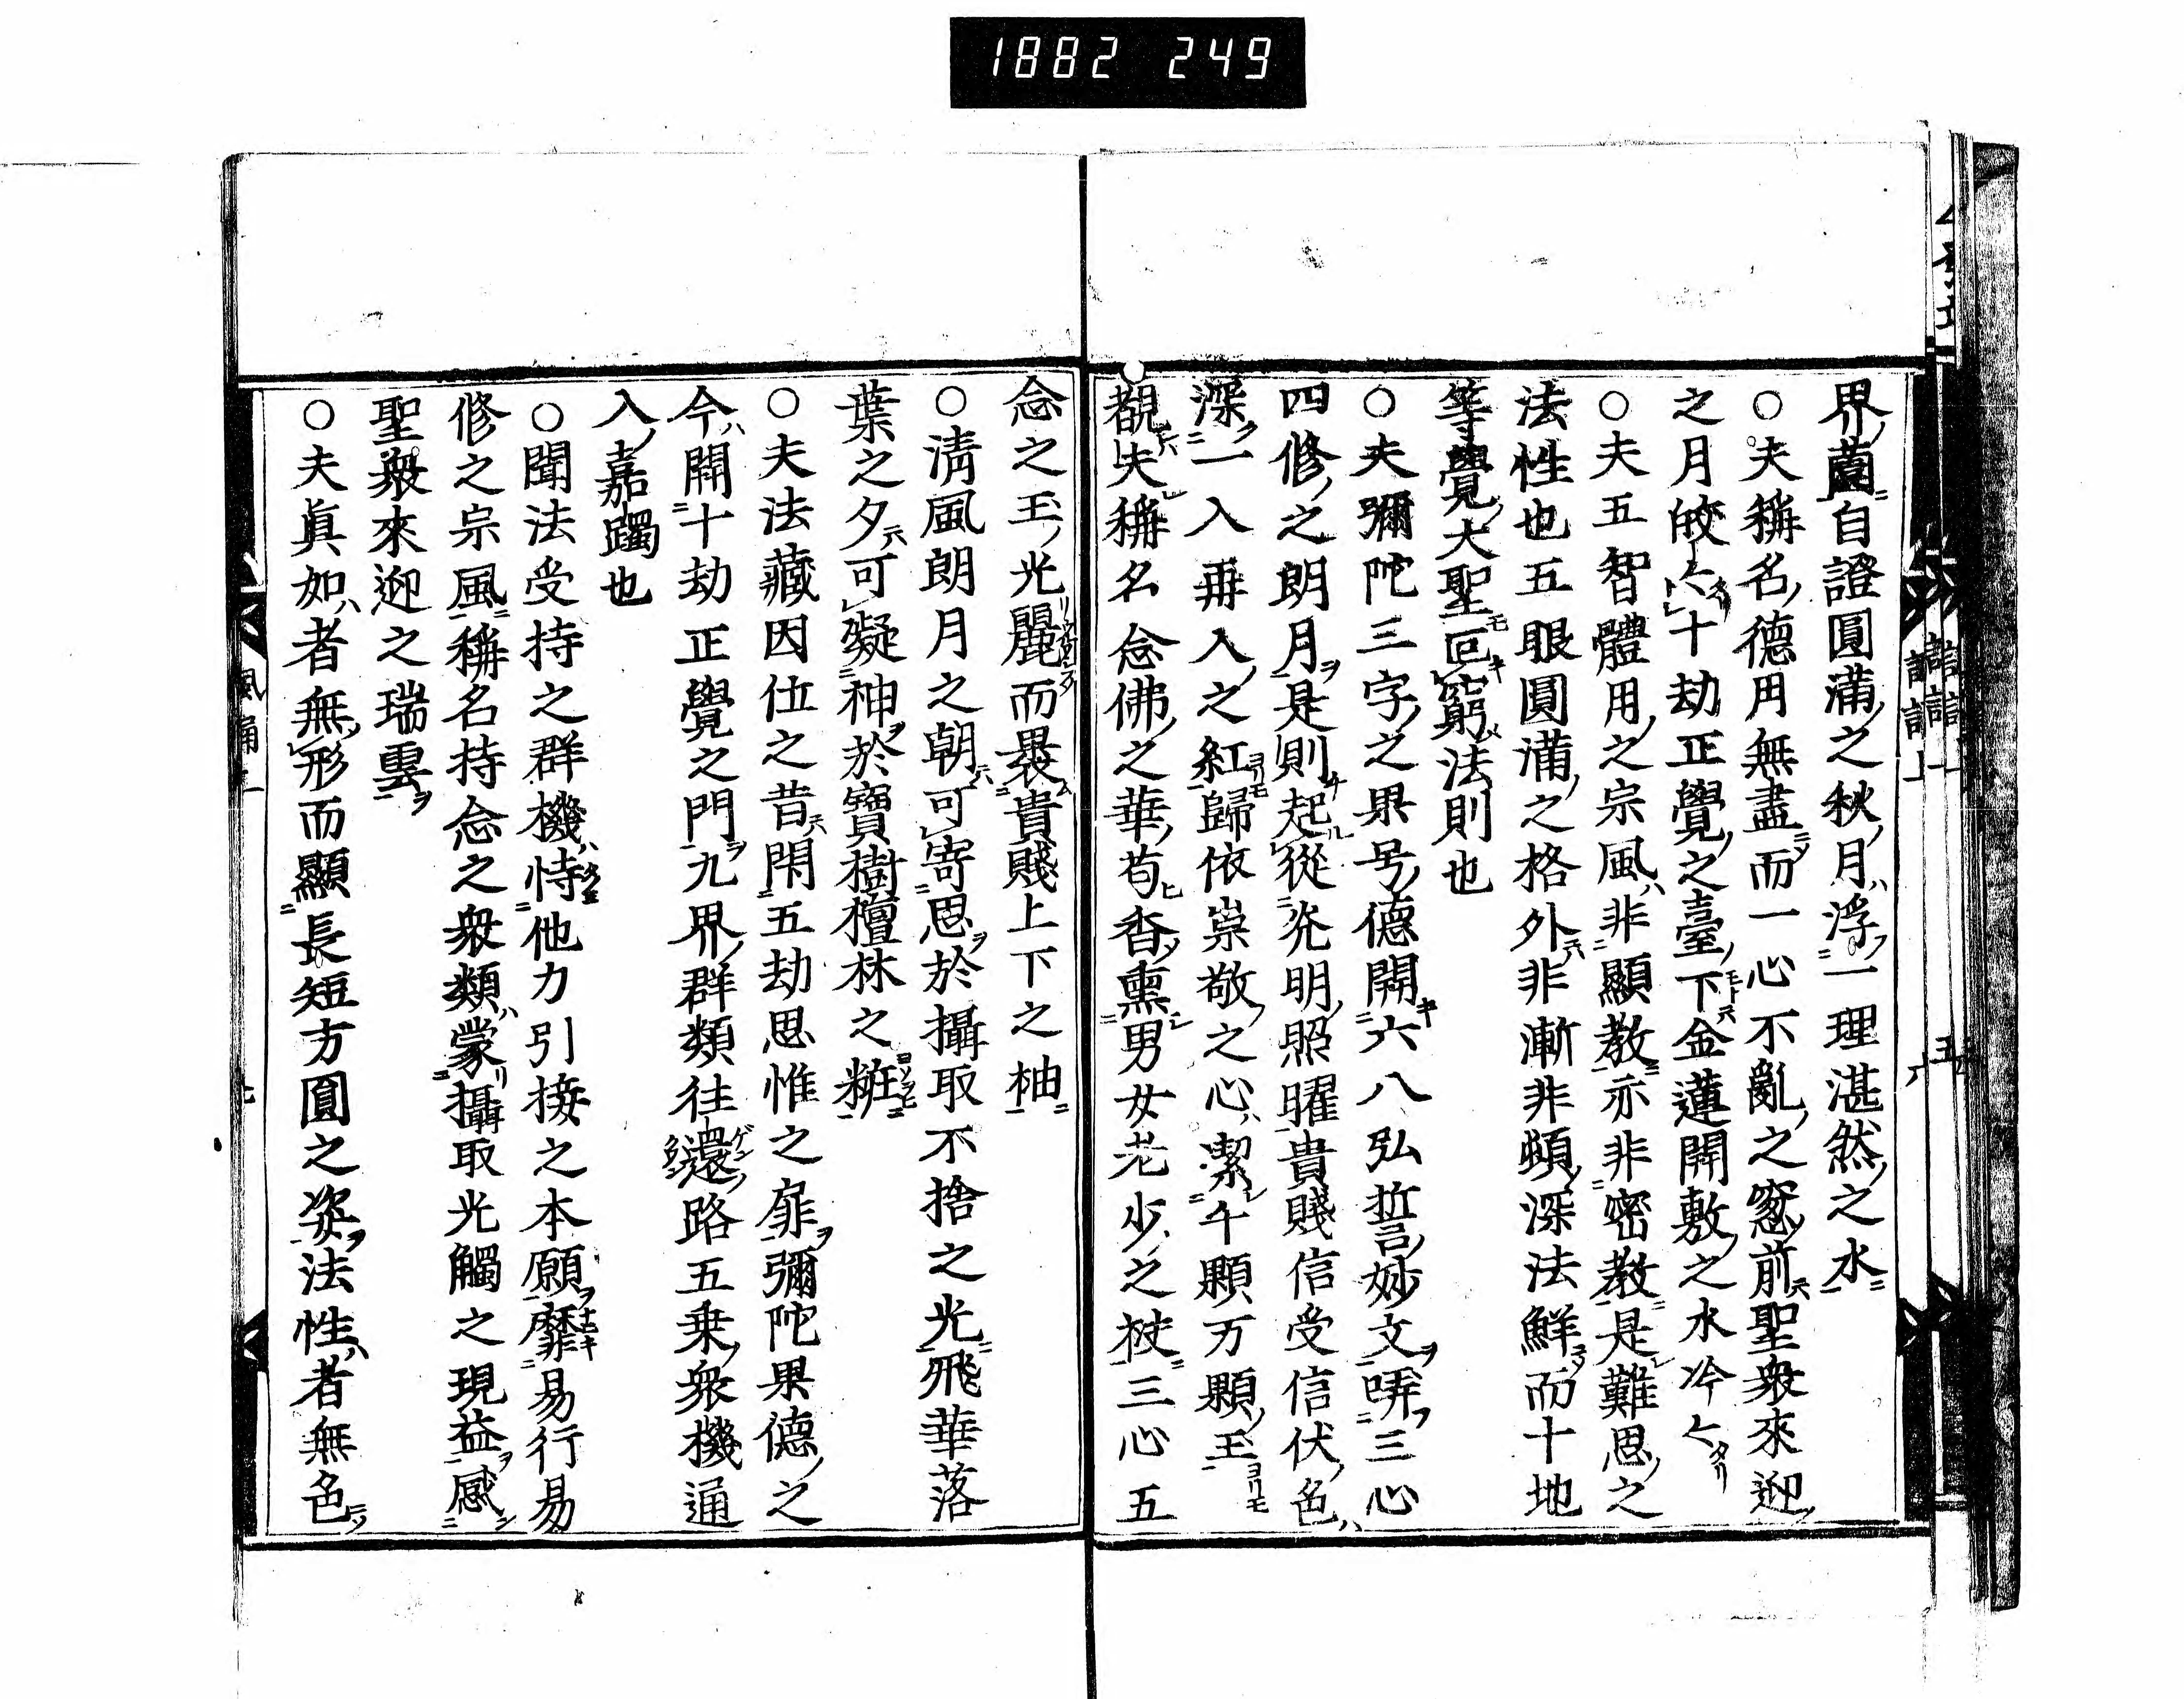 1882 249
界薗自證圓滿之秋月浮一理湛然之水
○夫稱名德用無盡而一心不亂之窓前聖衆來迎
之月皎々十劫正覺之臺下金蓮開敷之水冷々
○夫五智體用之宗風非顯教亦非密教是難思之
法性也五眼圓滿之格外非漸非頓深法鮮而十地
等覺大聖叵窮法則也
○夫彌陀三字之果号德開六八弘誓妙文哢三心
四修之朗月是則起從光明照曜貴賤信受信伏色
深一入再入之紅歸依崇敬之心潔千顆万顆玉
覩夫稱名念佛之華苟香熏男女老少之袂三心五
念之玉光麗而裹貴賤上下之柚
○淸風朗月之朝可寄思於攝取不捨之光飛華落
葉之夕可凝神於寶樹檀林之粧
○夫法藏因位之昔閑五劫思惟之扉彌陀果德之
今開十劫正覺之門九界群類往還路五乗衆機通
入嘉躅也
○聞法受持之群機恃他力引接之本願靡易行易
修之宗風稱名持念之衆類蒙攝取光觸之現益感
聖衆來迎之瑞雲
○夫眞如者無形而顯長短方圓之姿法性者無色